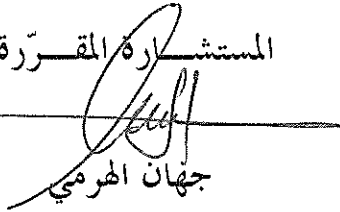 المستشــارة المقــرّرة
جهان الهرمي